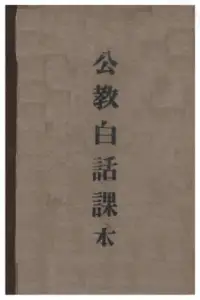 公教白話課本